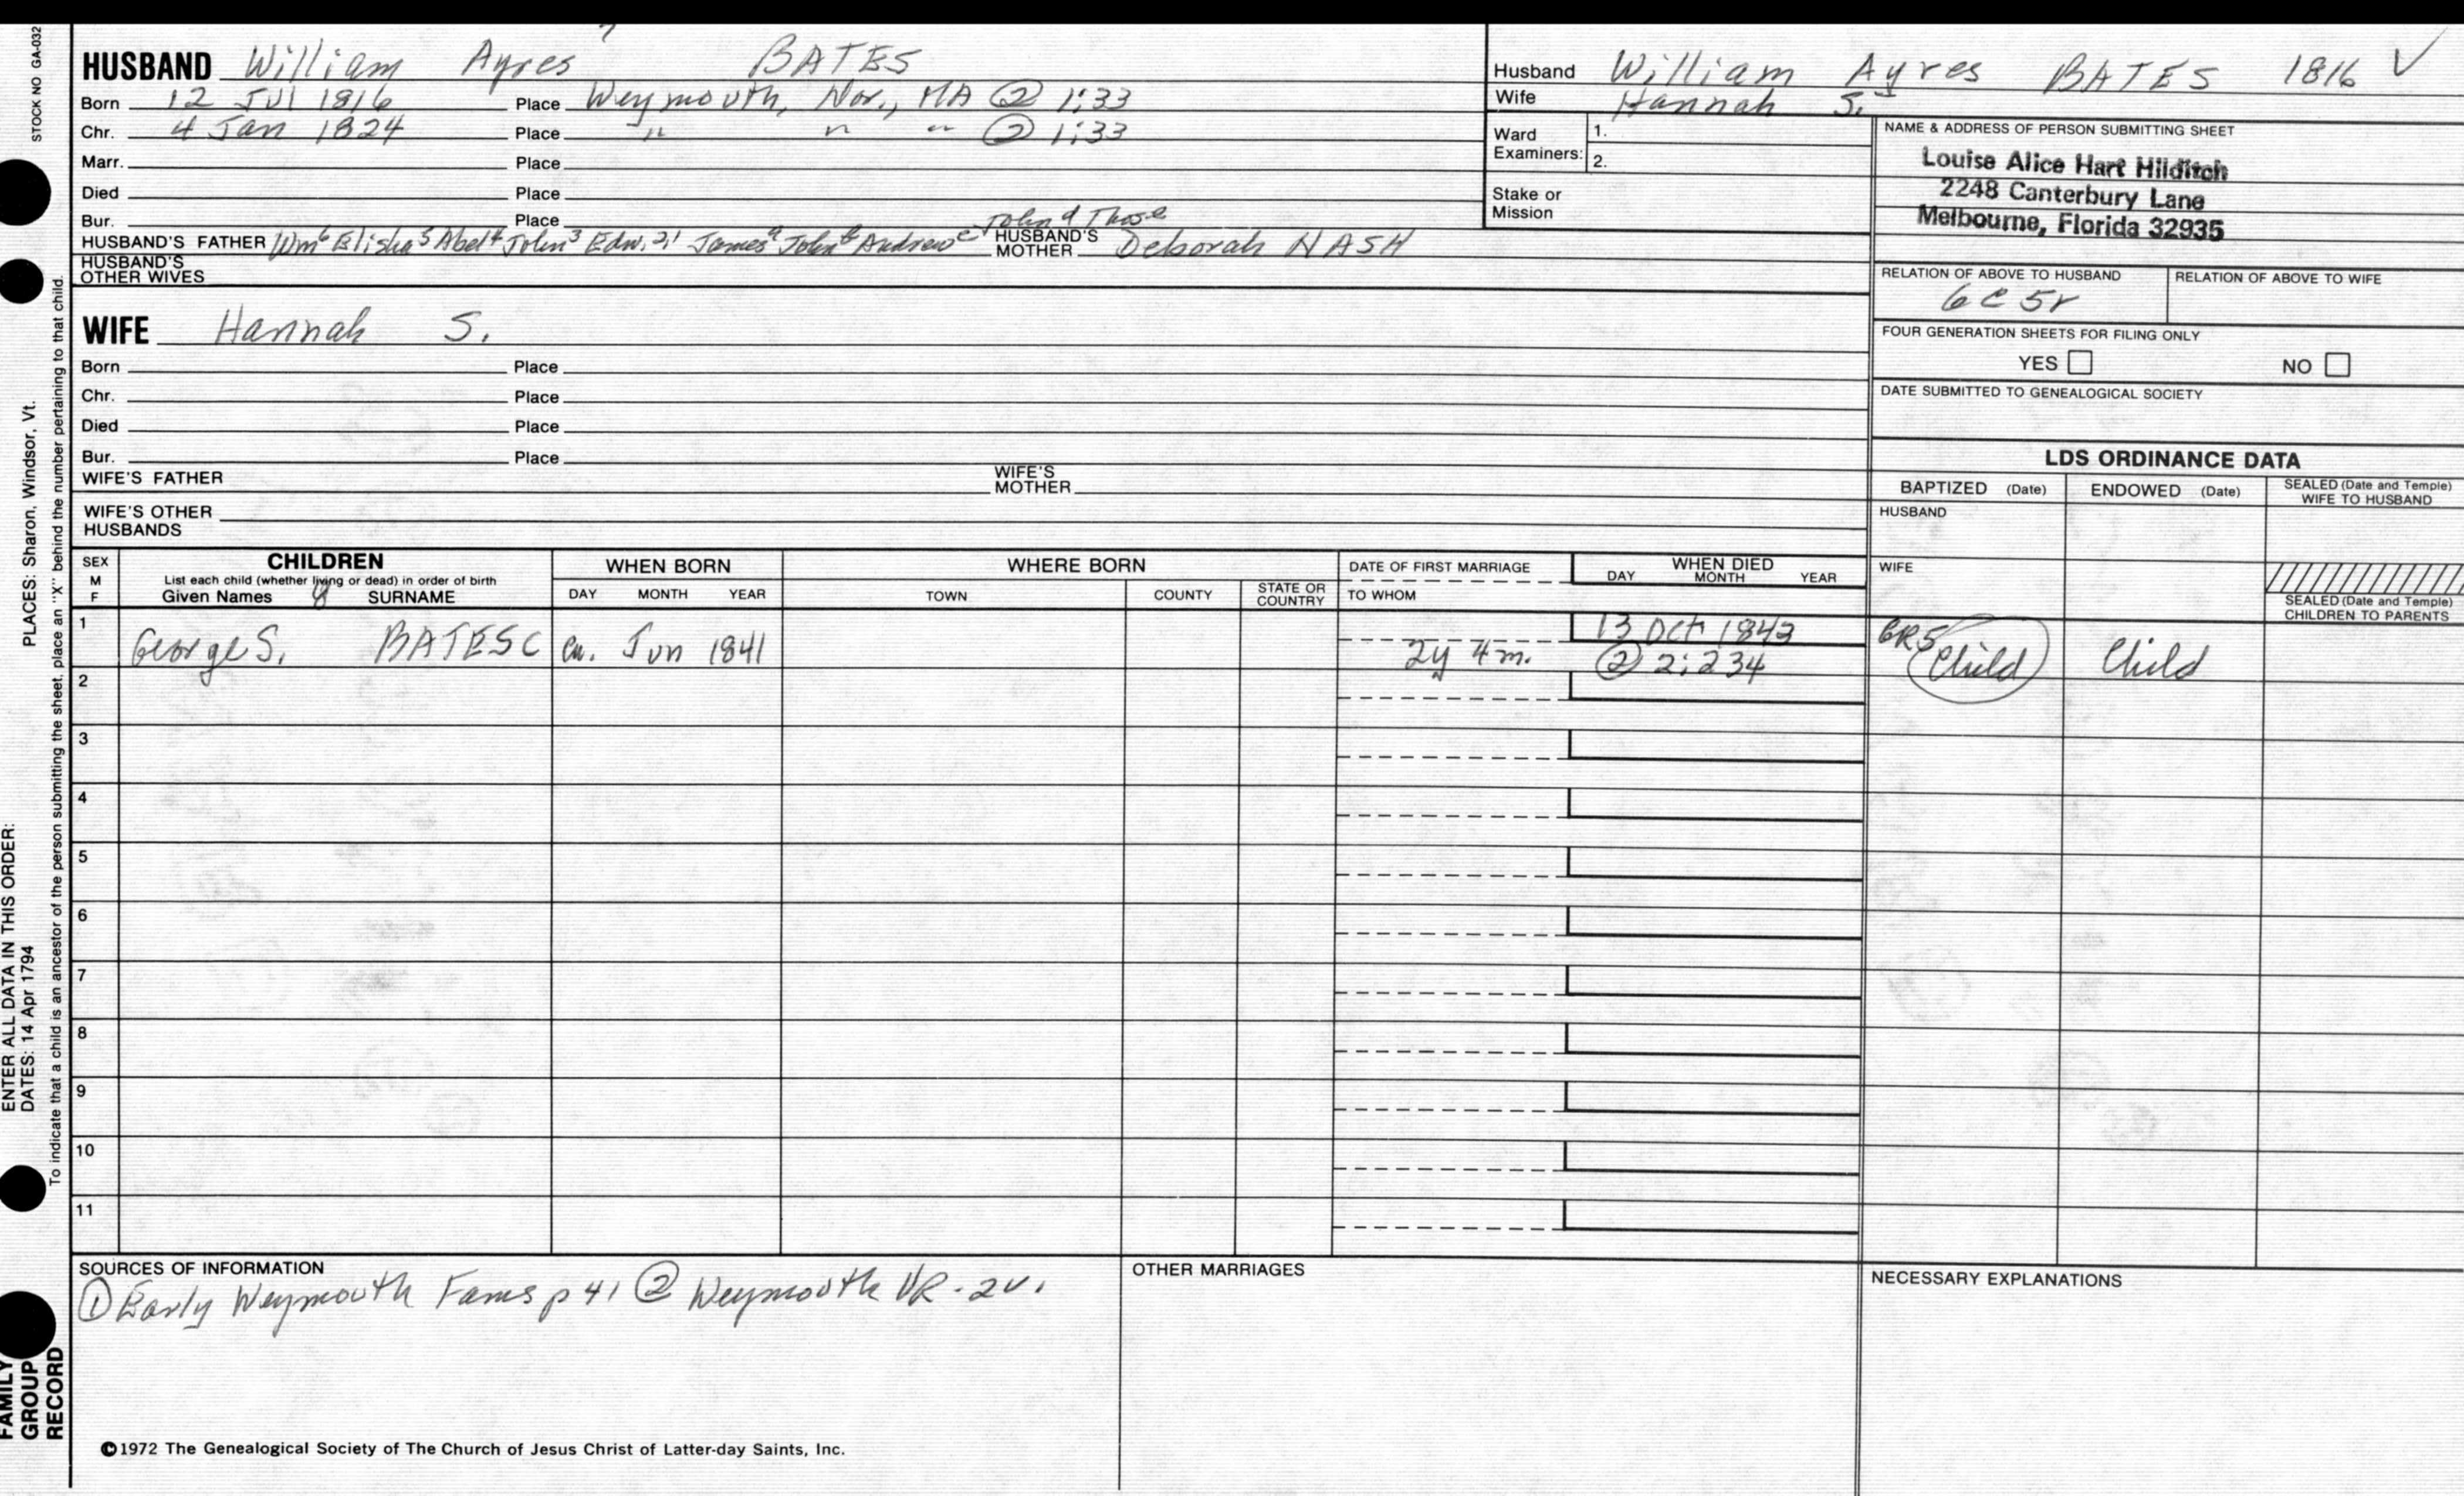 STOCK NO GA-032
HUSBAND William Ayres 7 BATES
Born 12 Jul 1816 Place Weymouth, Nor., MA ② 1:33
Chr. 4 Jan 1824 Place " " " ② 1:33
Marr. Place
Died Place
Bur. Place
HUSBAND'S FATHER Wm6 Elisha5 Abel4 John3 Edw. 2,1 Jamesa Johnb Andrewc Johnd Thos e HUSBAND'S MOTHER Deborah NASH
HUSBAND'S OTHER WIVES
WIFE Hannah S.
Born Place
Chr. Place
Died Place
Bur. Place
WIFE'S FATHER WIFE'S MOTHER
WIFE'S OTHER HUSBANDS
Husband William Ayres BATES 1816 V
Wife Hannah S.
Ward Examiners: 1.
2.
Stake or Mission
NAME & ADDRESS OF PERSON SUBMITTING SHEET
Louise Alice Hart Hilditch
2248 Canterbury Lane
Melbourne, Florida 32935
RELATION OF ABOVE TO HUSBAND RELATION OF ABOVE TO WIFE
6C 5r
FOUR GENERATION SHEETS FOR FILING ONLY
YES NO
DATE SUBMITTED TO GENEALOGICAL SOCIETY
LDS ORDINANCE DATA
BAPTIZED (Date) ENDOWED (Date) SEALED (Date and Temple) WIFE TO HUSBAND
HUSBAND
WIFE
SEALED (Date and Temple) CHILDREN TO PARENTS
SEX M F
CHILDREN
List each child (whether living or dead) in order of birth
Given Names 8 SURNAME
WHEN BORN
DAY MONTH YEAR
WHERE BORN
TOWN COUNTY STATE OR COUNTRY
DATE OF FIRST MARRIAGE
TO WHOM
WHEN DIED
DAY MONTH YEAR
1 George S. BATES C ca. Jun 1841 2y 4m. 13 Oct 1843 ② 2:234 Child Child
2
3
4
5
6
7
8
9
10
11
SOURCES OF INFORMATION
① Early Weymouth Fams p 41 ② Weymouth VR - 2v.
OTHER MARRIAGES
NECESSARY EXPLANATIONS
©1972 The Genealogical Society of The Church of Jesus Christ of Latter-day Saints, Inc.
PLACES: Sharon, Windsor, Vt.
To indicate that a child is an ancestor of the person submitting the sheet, place an "X" behind the number pertaining to that child.
ENTER ALL DATA IN THIS ORDER:
DATES: 14 Apr 1794
FAMILY
GROUP
RECORD